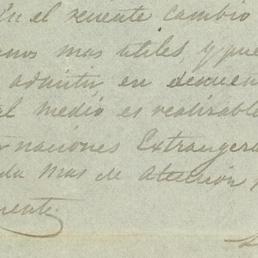 En el reciente cambio
mas utiles, y pue
admitir en descuen
al medio es realizable
naciones Extrangera
da mas de atencion
mente.